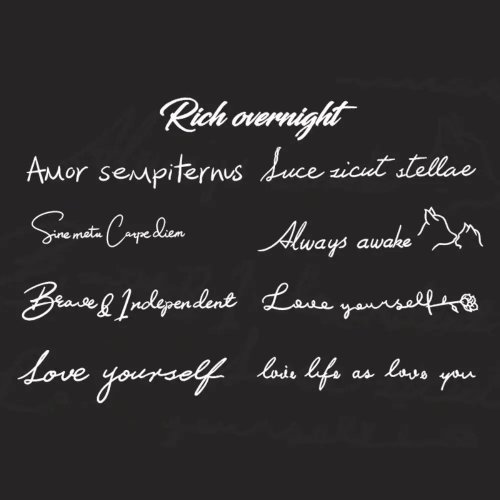 Rich overnight
Amor sempiternus
Suce sicut stellae
Sine metu Carpe diem
Always awake
Brave & Independent
Love yourself
Love yourself
love life as love you